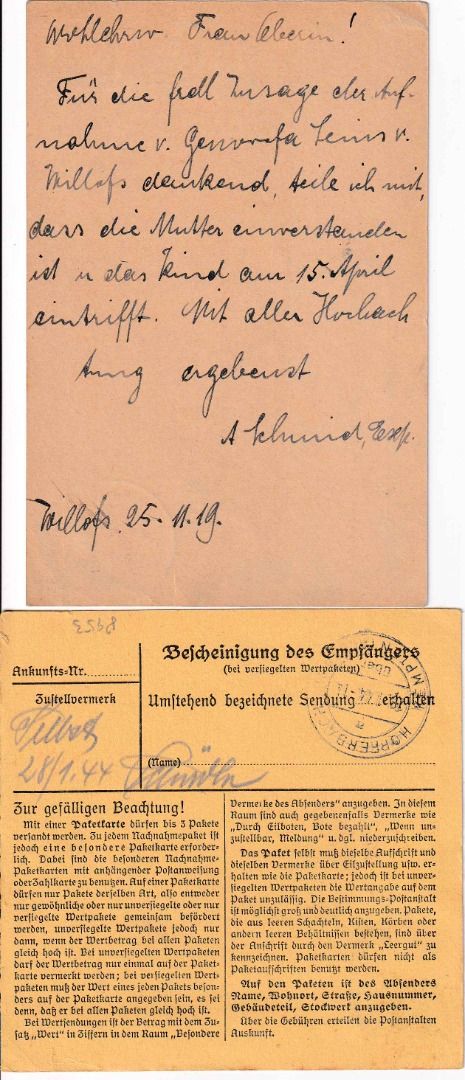 Wohlehrw. Frau Oberin!
Für die frdl Zusage der Auf-
nahme v. Genovefa Leins v.
Willofs dankend, teile ich mit,
dass die Mutter einverstanden
ist u das Kind am 15. April
eintrifft. Mit aller Hochach
tung ergebenst
A Schmid, Exp.
Willofs 25. 11. 19.
8953
Bescheinigung des Empfängers
(bei versiegelten Wertpaketen)
Ankunfts-Nr.
Zustellvermerk
Umstehend bezeichnete Sendung erhalten
HOPFERBACH
Selbst
28/1.44
(Name)
Zur gefälligen Beachtung!
Mit einer Paketkarte dürfen bis 3 Pakete
versandt werden. Zu jedem Nachnahmepaket ist
jedoch eine besondere Paketkarte erforder-
lich. Dabei sind die besonderen Nachnahme-
Paketkarten mit anhängender Postanweisung
oder Zahlkarte zu benutzen. Auf einer Paketkarte
dürfen nur Pakete derselben Art, also entweder
nur gewöhnliche oder nur unversiegelte oder nur
versiegelte Wertpakete gemeinsam befördert
werden, unversiegelte Wertpakete jedoch nur
dann, wenn der Wertbetrag bei allen Paketen
gleich hoch ist. Bei unversiegelten Wertpaketen
darf der Wertbetrag nur einmal auf der Paket-
karte vermerkt werden; bei versiegelten Wert-
paketen muß der Wert eines jeden Pakets beson-
ders auf der Paketkarte angegeben sein, es sei
denn, daß er bei allen Paketen gleich hoch ist.
Bei Wertsendungen ist der Betrag mit dem Zu-
satz „Wert" in Ziffern in dem Raum „Besondere
Vermerke des Absenders" anzugeben. In diesem
Raum sind auch gegebenenfalls Vermerke wie
„Durch Eilboten, Bote bezahlt", „Wenn un-
zustellbar, Meldung" u. dgl. niederzuschreiben.
Das Paket selbst muß dieselbe Aufschrift und
dieselben Vermerke über Eilzustellung usw. er-
halten wie die Paketkarte; jedoch ist bei unver-
siegelten Wertpaketen die Wertangabe auf dem
Paket unzulässig. Die Bestimmungs-Postanstalt
ist möglichst groß und deutlich anzugeben. Pakete,
die aus leeren Schachteln, Kisten, Körben oder
andern leeren Behältnissen bestehen, sind über
der Anschrift durch den Vermerk „Leergut" zu
kennzeichnen. Paketkarten dürfen nicht als
Paketaufschriften benutzt werden.
Auf den Paketen ist des Absenders
Name, Wohnort, Straße, Hausnummer,
Gebäudeteil, Stockwerk anzugeben.
Über die Gebühren erteilen die Postanstalten
Auskunft.